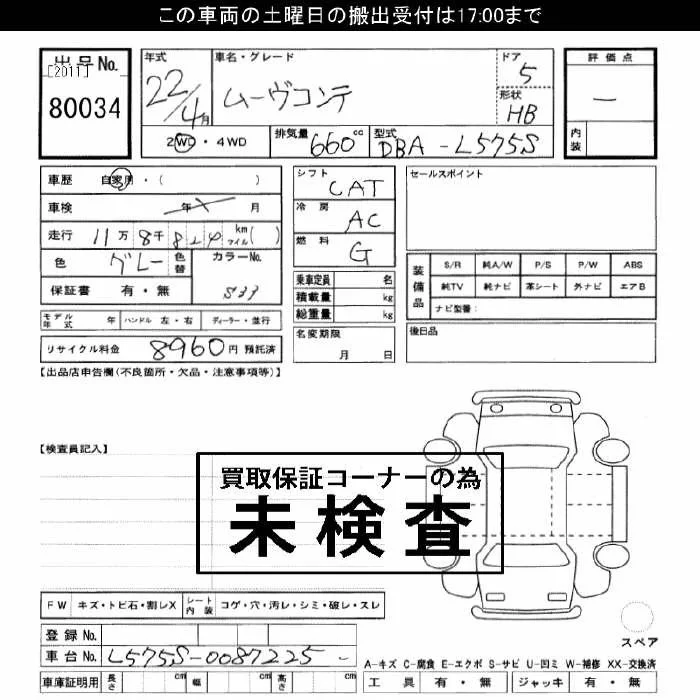 この車両の土曜日の搬出受付は17:00まで
出品No.
[2011]
80034
年式
22/4月
車名・グレード
ムーヴコンテ
ドア
5
形状
HB
2WD・4WD
排気量
660cc
型式
DBA-L575S
評価点
—
内装
車歴 自家用・( )
車検 年 月
走行 11万8千824 km マイル( )
色 グレー 色替 カラーNo.
保証書 有・無 S39
モデル年式 年 ハンドル 左・右 ディーラー・並行
リサイクル料金 8960円 預託済
シフト
CAT
冷房
AC
燃料
G
乗車定員 名
積載量 kg
総重量 kg
名変期限
月 日
セールスポイント
装備品
S/R 純A/W P/S P/W ABS
純TV 純ナビ 革シート 外ナビ エアB
ナビ型番:
後日品
【出品店申告欄(不良箇所・欠品・注意事項等)】
【検査員記入】
買取保証コーナーの為
未検査
FW キズ・トビ石・割レX シート内装 コゲ・穴・汚レ・シミ・破レ・スレ
登録No.
車台No. L575S-0087225-
車庫証明用 長さ cm 幅 cm 高さ cm
スペア
A-キズ C-腐食 E-エクボ S-サビ U-凹ミ W-補修 XX-交換済
工具 有・無 ジャッキ 有・無